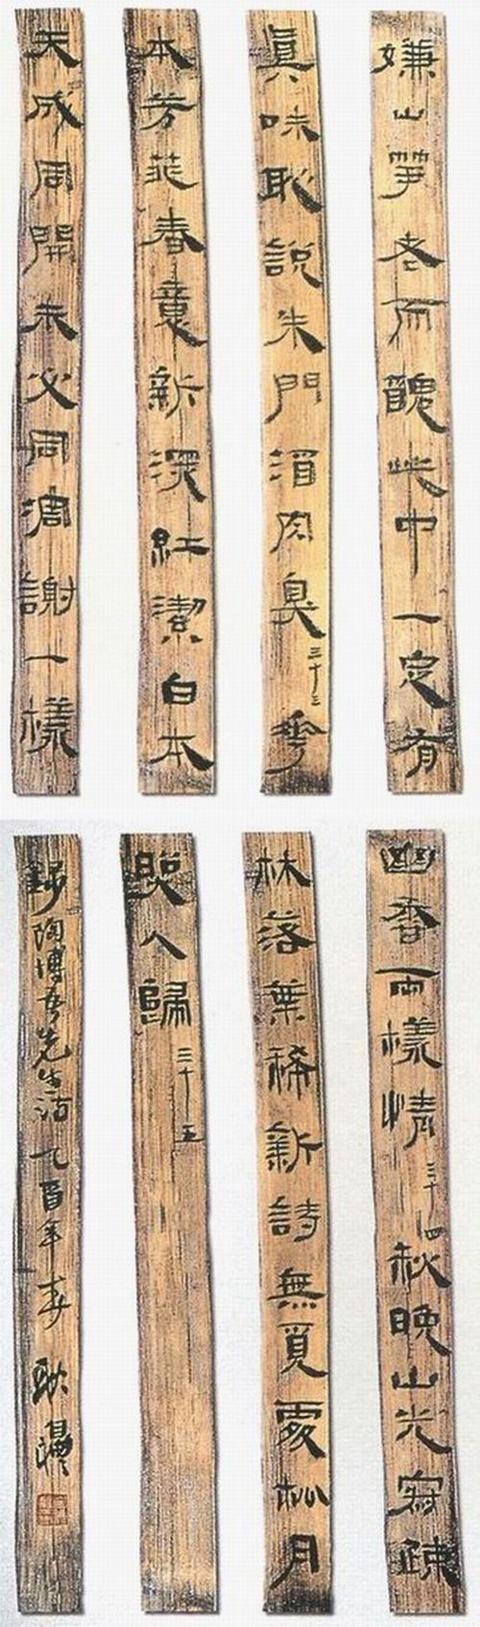 嫌山笋老而醜此中一定有
真味恥說朱門酒肉臭三十三花
本芳菲春意新深紅潔白本
天成同開未必同凋謝一樣
幽香兩樣情三十四秋晚山光寂疎
林落葉稀新詩無覓處松月
照人歸三十五
錄陶博吾先生詩乙酉年春耿